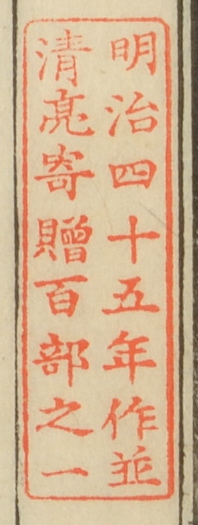 明治四十五年作並
清亮寄贈百部之一